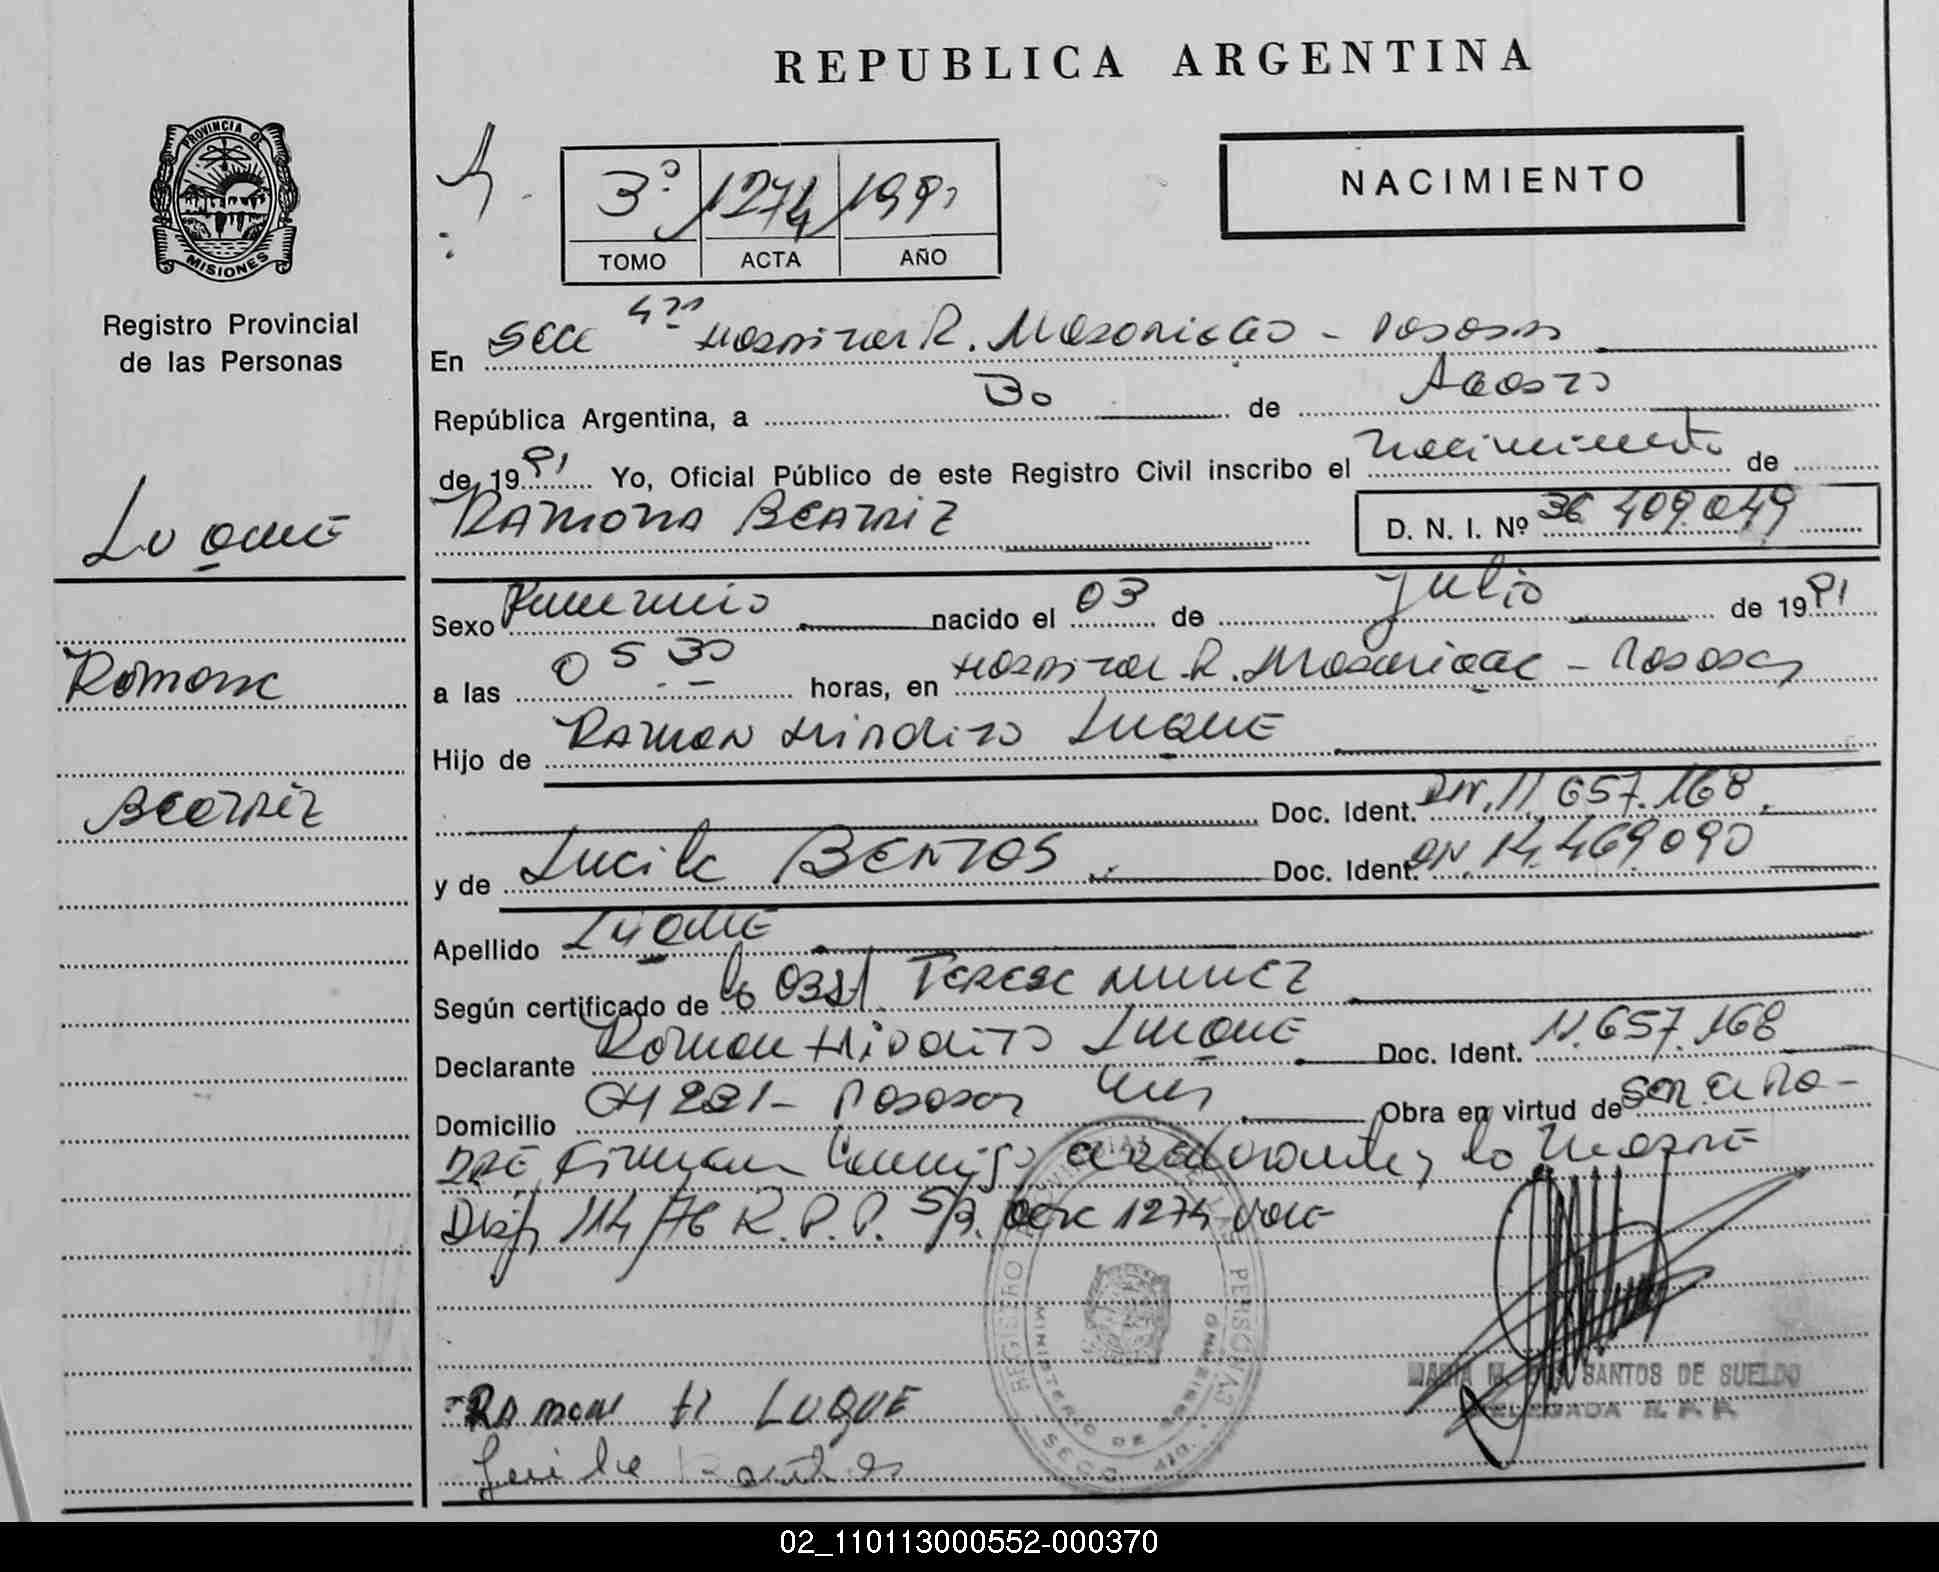 REPUBLICA ARGENTINA
PROVINCIA DE
MISIONES
Registro Provincial
de las Personas
3º 1274 1991
TOMO ACTA AÑO
NACIMIENTO
En Secc 4ta Hospital R. Madariaga - Posadas
República Argentina, a 30 de Agosto
de 1991 Yo, Oficial Público de este Registro Civil inscribo el nacimiento de
LUQUE
RAMONA BEATRIZ D. N. I. Nº 36.409.049
Sexo Femenino nacido el 03 de Julio de 1991
Ramona
a las 05 30 horas, en Hospital R. Madariaga - Posadas
Hijo de RAMON Hipolito LUQUE
Beatriz
Doc. Ident. DNI. 11.657.168
y de Lucila BENTOS Doc. Ident. DNI 14.469.090
Apellido LUQUE
Según certificado de la Obst. Teresa Nuñez
Declarante Ramon Hipolito Luque Doc. Ident. 11.657.168
Domicilio Posadas Mnes Obra en virtud de ser el Pa-
dre Firman conmigo el declarante y la Madre
Disp. 114/76 R.P.P. S/B. Acta 1274 vale
REGISTRO PROVINCIAL DE LAS PERSONAS
MINISTERIO DE GOBIERNO
SECC. 4ta.
MARIA M. SANTOS DE SUELDO
DELEGADA R. P. P.
RAMON H LUQUE
Lucila Bentos
02_110113000552-000370